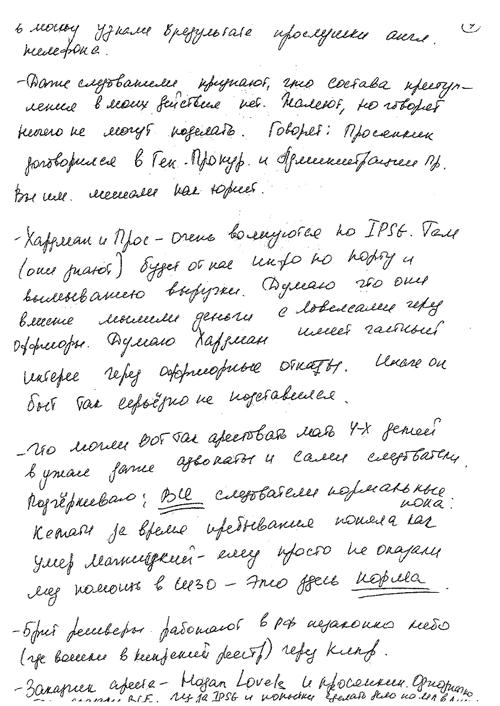 в Москву узнали в результате прослушки англ.
телефона.
- Даже следователи признают, что состава преступ-
ления в моих действиях нет. Жалеют, но говорят
ничего не могут поделать. Говорят: Просянкин
договорился в Ген. Прокур. и Администрации Пр.
Вы им. мешали как юрист.
- Хардман и Прос - очень волнуются по IPSG. Там
(они знают) будет от нас инфо по порту и
вымыванию выручки. Думаю что они
вместе мыли деньги с Ловелсами через
оффшоры. Думаю Хардман имеет частный
интерес через оффшорные откаты. Иначе он
был так серьёзно не подставился.
- Что могли вот так арестовать мать 4-х детей
в ужасе даже адвокаты и сами следователи.
Подчёркиваю; все следователи нормальные
пока.
Кстати за время пребывания поняла как
умер Магнитский - ему просто не оказали
мед помощь в СИЗО - Это здесь норма.
- Брит ресиверы работают в РФ незаконно либо
(где вошли в реестр) через Кипр.
- Заказчик ареста - Hogan Lovells и Просянкин. Однозначно
из за IPSG и попытки сделать